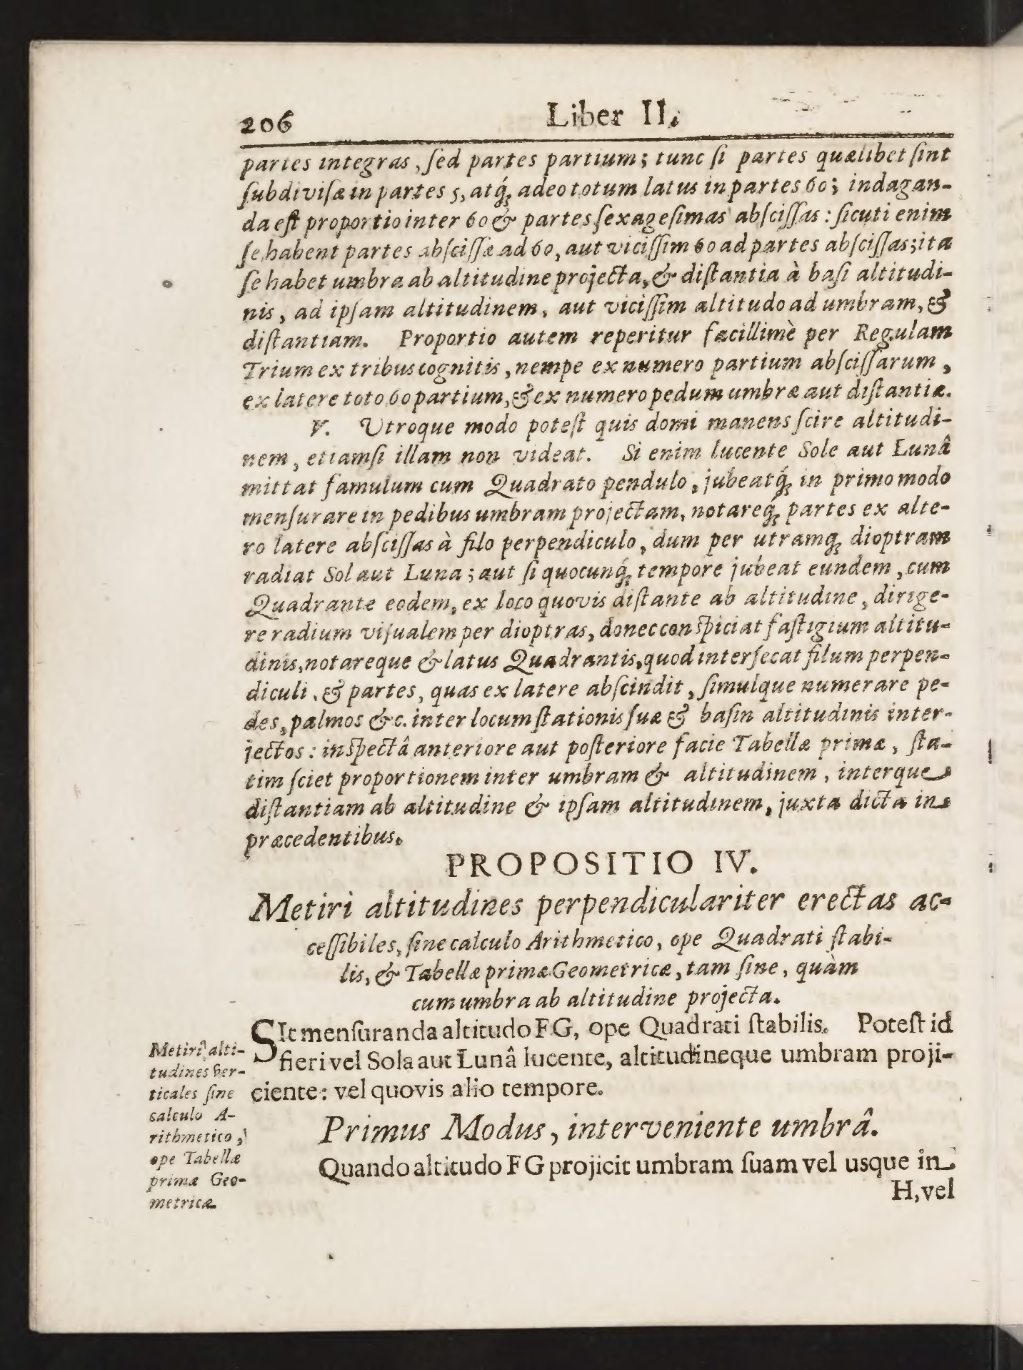 206 Liber II.
partes integras, sed partes partium; tunc si partes quælibet sint
subdivisæ in partes 5, atq́; adeo totum latus in partes 60; indagan-
da est proportio inter 60 & partes sexagesimas abscissas: sicuti enim
se habent partes abscissæ ad 60, aut vicissim 60 ad partes abscissas; ita
se habet umbra ab altitudine projecta, & distantia à basi altitudi-
nis, ad ipsam altitudinem, aut vicissim altitudo ad umbram, &
distantiam. Proportio autem reperitur facillimè per Regulam
Trium ex tribus cognitis, nempe ex numero partium abscissarum,
ex latere toto 60 partium, & ex numero pedum umbræ aut distantiæ.
V. Utroque modo potest quis domi manens scire altitudi-
nem, etiamsi illam non videat. Si enim lucente Sole aut Lunâ
mittat famulum cum Quadrato pendulo, jubeatq́; in primo modo
mensurare in pedibus umbram projectam, notareq́; partes ex alte-
ro latere abscissas à filo perpendiculo, dum per utramq; dioptram
radiat Sol aut Luna; aut si quocunq́; tempore jubeat eundem, cum
Quadrante eodem, ex loco quovis distante ab altitudine, dirige-
re radium visualem per dioptras, donec conspiciat fastigium altitu-
dinis, notareque & latus Quadrantis, quod intersecat filum perpen-
diculi, & partes, quas ex latere abscindit, simulque numerare pe-
des, palmos &c. inter locum stationis suæ & basin altitudinis inter-
jectos: inspectâ anteriore aut posteriore facie Tabellæ primæ, sta-
tim sciet proportionem inter umbram & altitudinem, interque
distantiam ab altitudine & ipsam altitudinem, juxta dicta in
præcedentibus.
PROPOSITIO IV.
Metiri altitudines perpendiculariter erectas ac-
cessibiles, sine calculo Arithmetico, ope Quadrati stabi-
lis, & Tabellæ primæ Geometricæ, tam sine, quàm
cum umbra ab altitudine projecta.
SIt mensuranda altitudo FG, ope Quadrati stabilis. Potest id
fieri vel Sola aut Lunâ lucente, altitudineque umbram proji-
ciente: vel quovis alio tempore.
Metiri alti-
tudines ver-
ticales sine
calculo A-
rithmetico,
ope Tabellæ
primæ Geo-
metricæ.
Primus Modus, interveniente umbrâ.
Quando altitudo FG projicit umbram suam vel usque in
H, vel